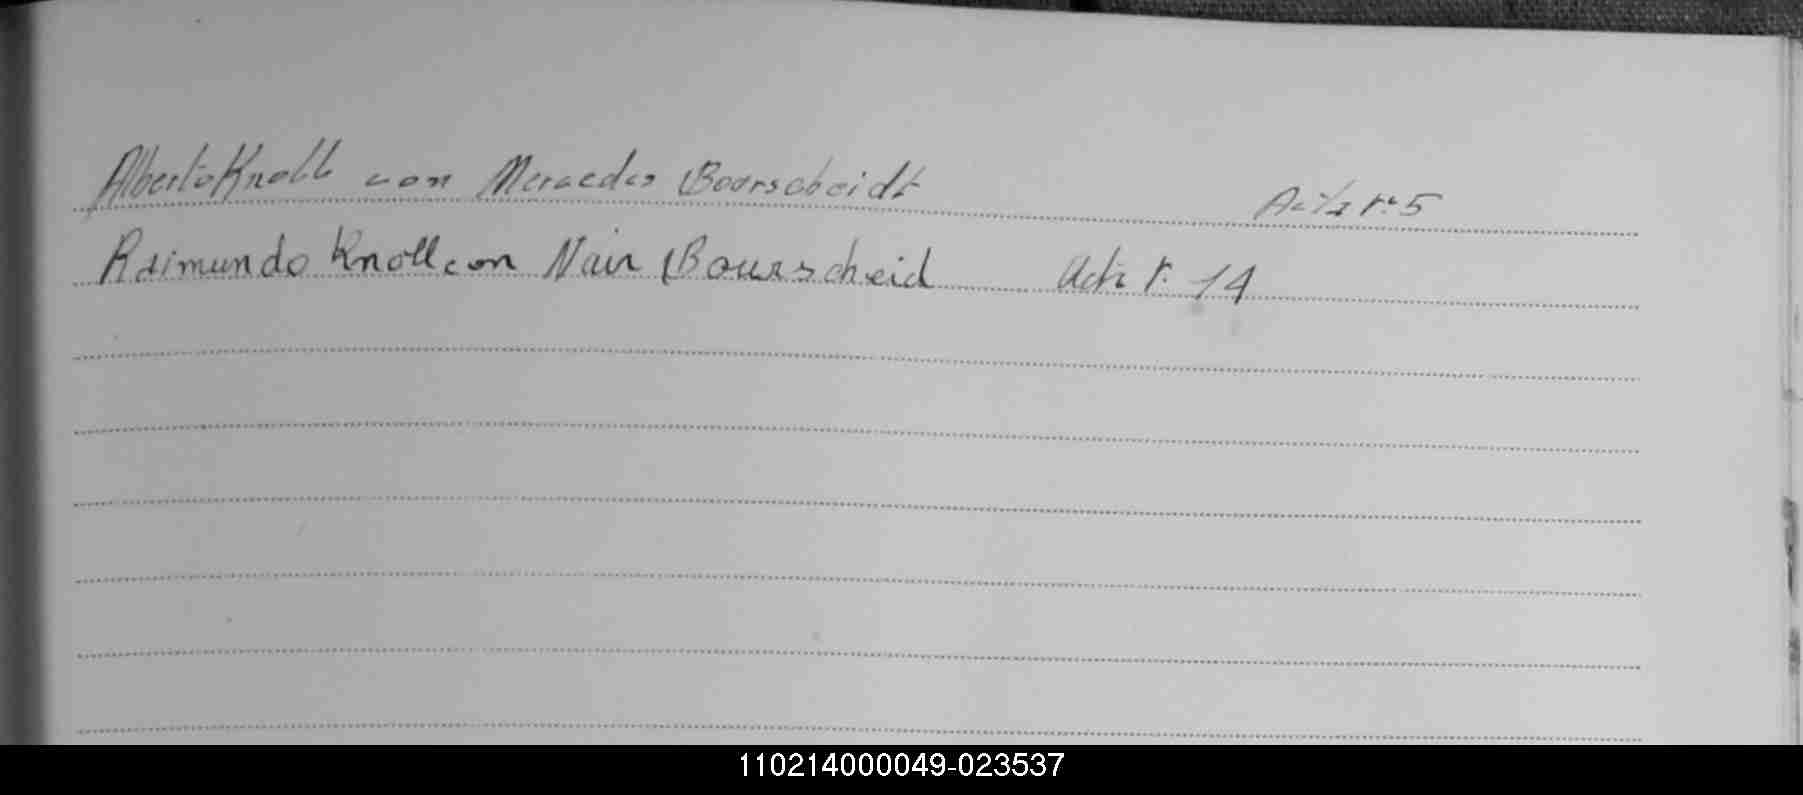 Alberto Knoll con Mercedes Boorscheidt Acta nº 5
Raimundo Knoll con Nair Bourscheid Acta nº 14
110214000049-023537